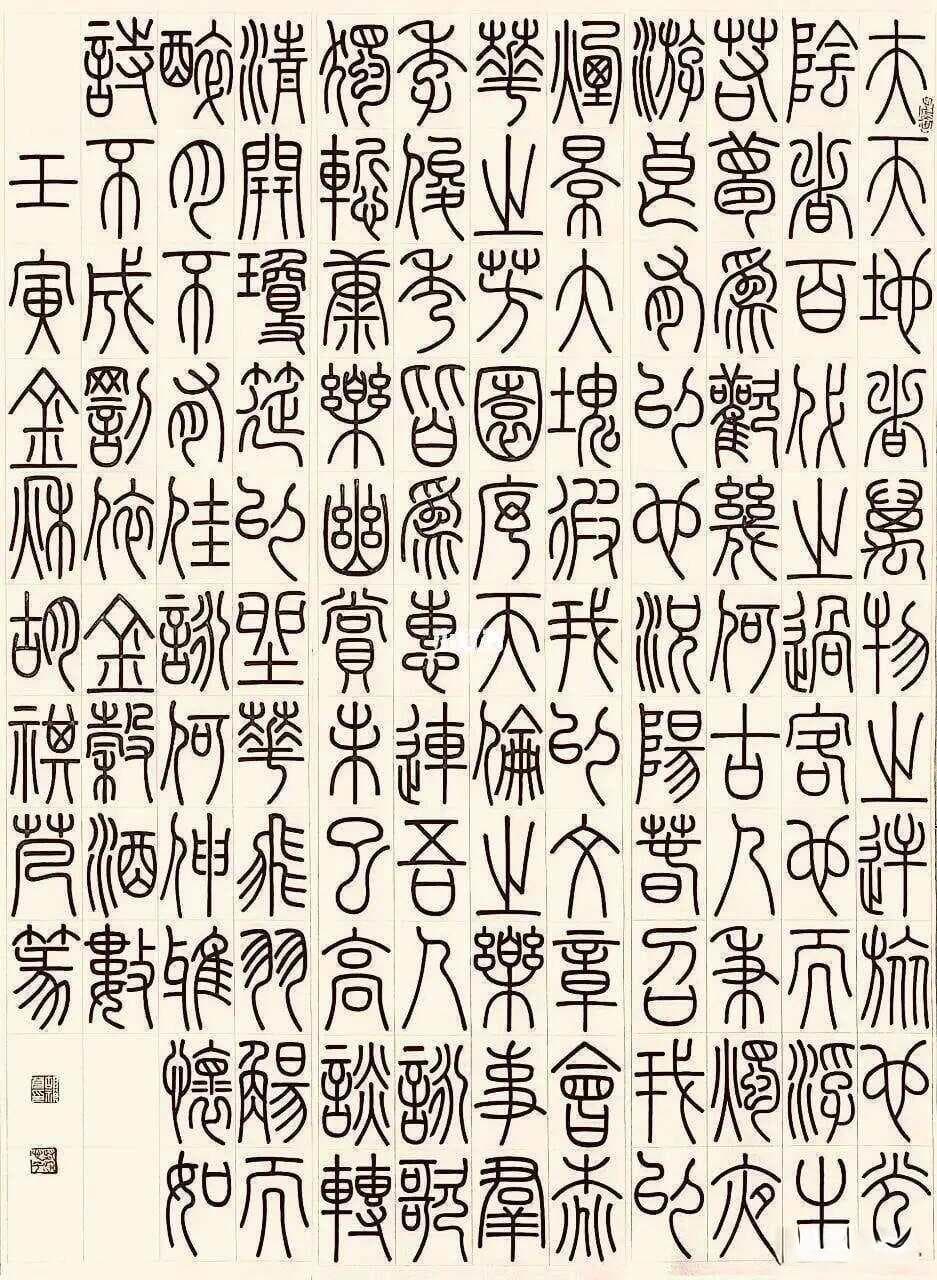 夫天地者萬物之逆旅也光
陰者百代之過客也而浮生
若夢為歡幾何古人秉燭夜
游良有以也況陽春召我以
煙景大塊假我以文章會桃
華之芳園序天倫之樂事羣
季俊秀皆為惠連吾人詠歌
獨慙康樂幽賞未已高談轉
清開瓊筵以坐華飛羽觴而
醉月不有佳詠何伸雅懷如
詩不成罰依金穀酒數
壬寅金秋胡祺篆